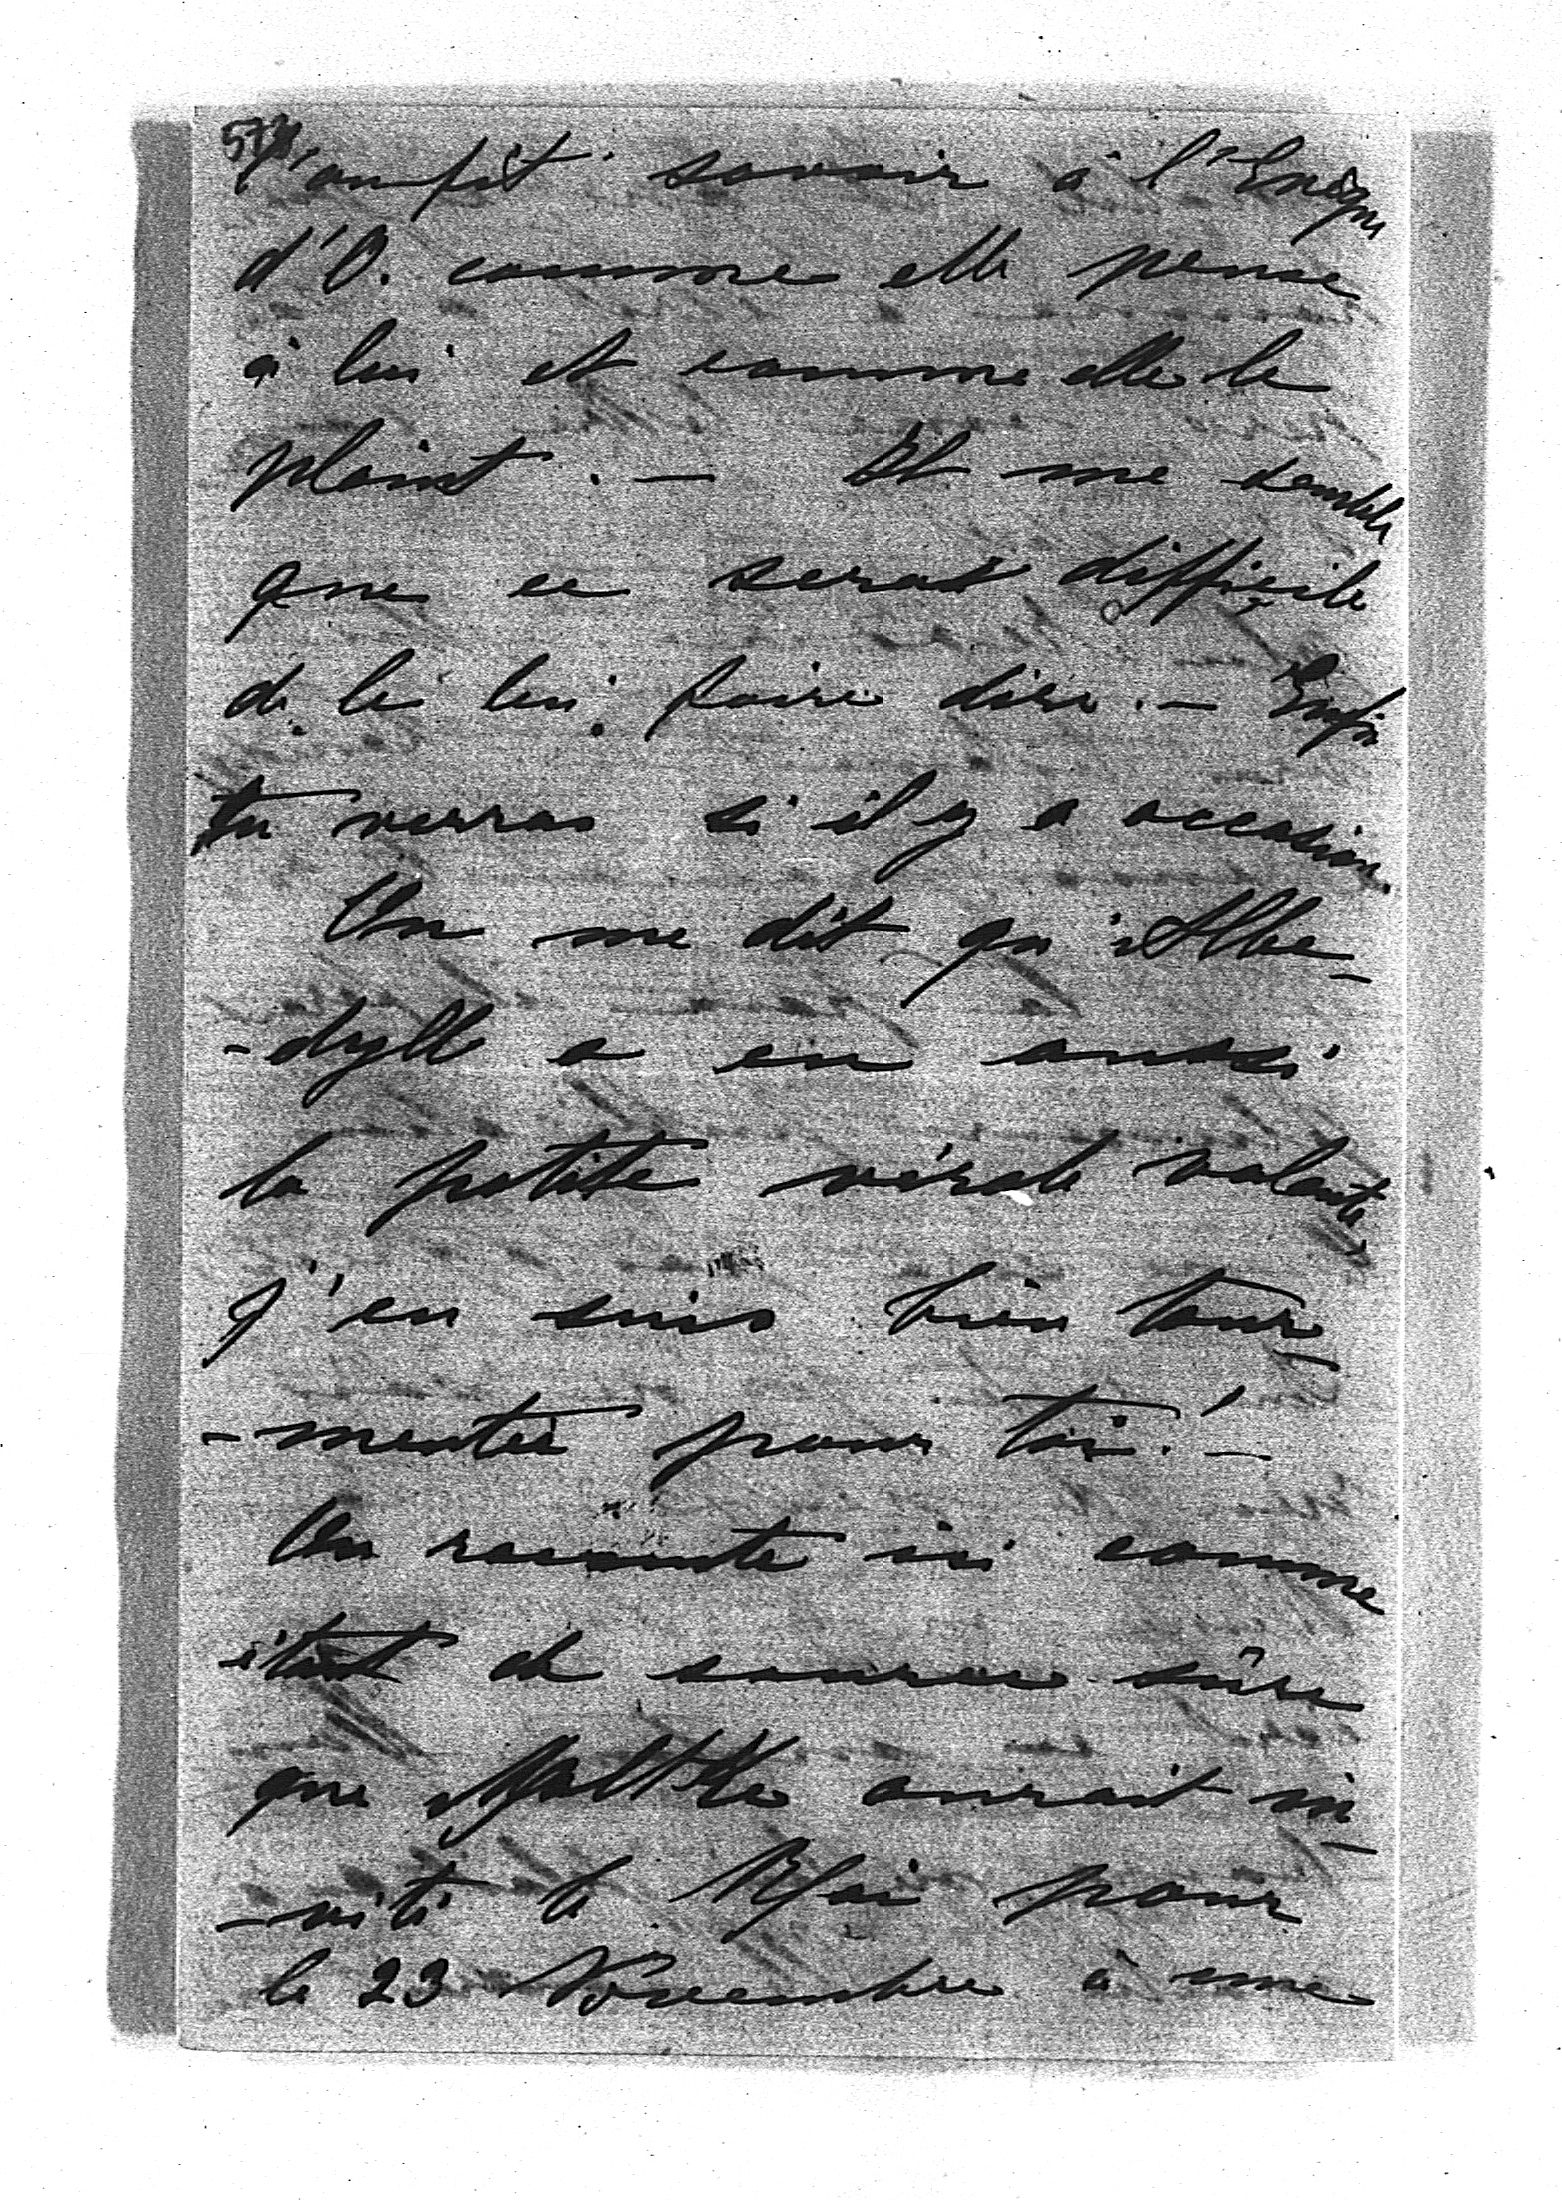 l'on fit savoir à l'Evêque
d'O. comme elle pense
à lui et comme elle le
plaint. — Il me semble
que ce serait difficile
de le lui faire dire. — Enfin
tu verras si il y a occasion.
On me dit qu'Albe-
-dylle a eu aussi
la petite vérole volante,
j'en suis bien tour-
-mentée pour toi! —
On raconte ici comme
étant de source sûre
que Moltke aurait in-
-vité le Roi pour
le 23 Novembre à une